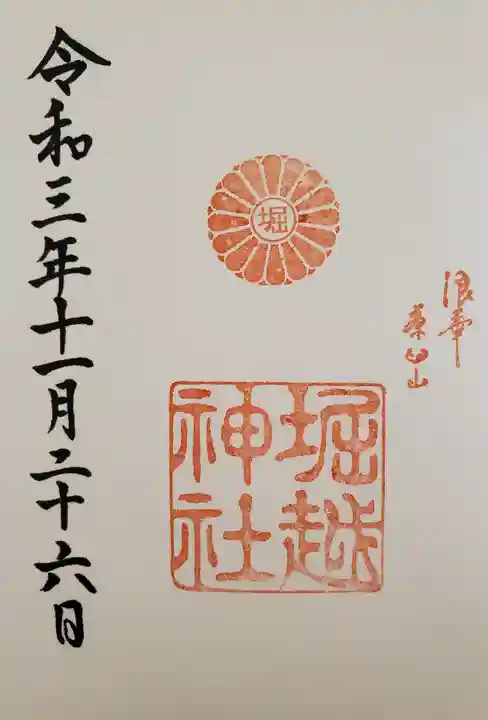 浪華
茶臼山
堀
堀越
神社
令和三年十一月二十六日